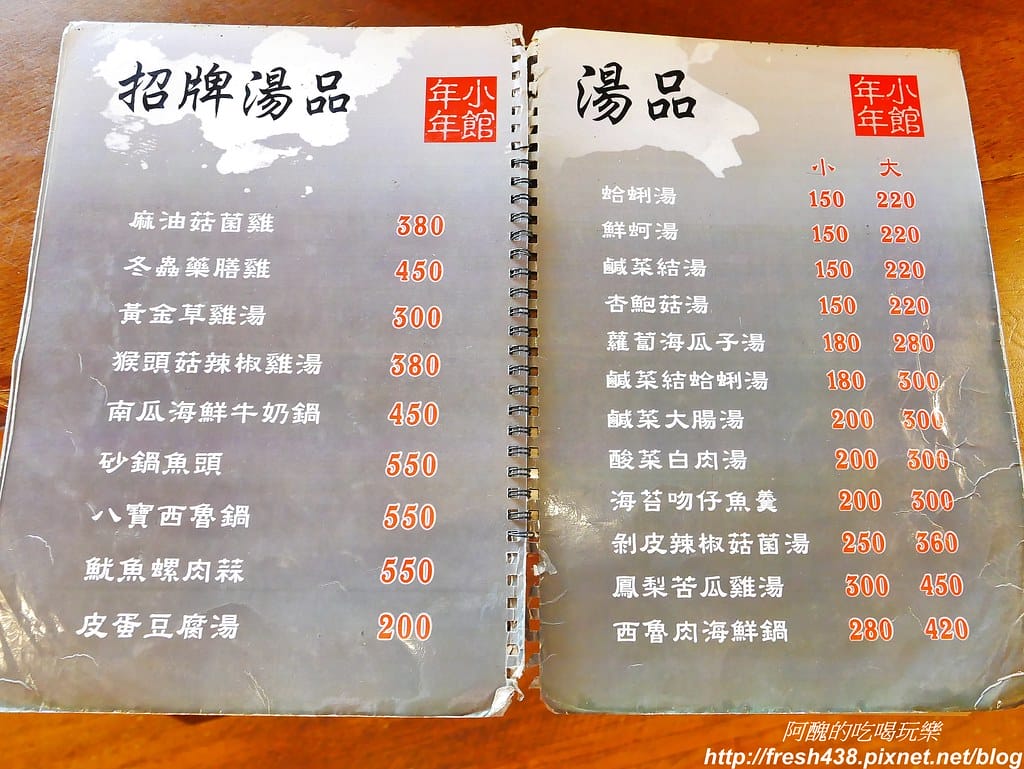 招牌湯品
年年小館
麻油菇菌雞 380
冬蟲藥膳雞 450
黃金草雞湯 300
猴頭菇辣椒雞湯 380
南瓜海鮮牛奶鍋 450
砂鍋魚頭 550
八寶西魯鍋 550
魷魚螺肉蒜 550
皮蛋豆腐湯 200
湯品
年年小館
小 大
蛤蜊湯 150 220
鮮蚵湯 150 220
鹹菜結湯 150 220
杏鮑菇湯 150 220
蘿蔔海瓜子湯 180 280
鹹菜結蛤蜊湯 180 300
鹹菜大腸湯 200 300
酸菜白肉湯 200 300
海苔吻仔魚羹 200 300
剝皮辣椒菇菌湯 250 360
鳳梨苦瓜雞湯 300 450
西魯肉海鮮鍋 280 420
阿醜的吃喝玩樂
http://fresh438.pixnet.net/blog